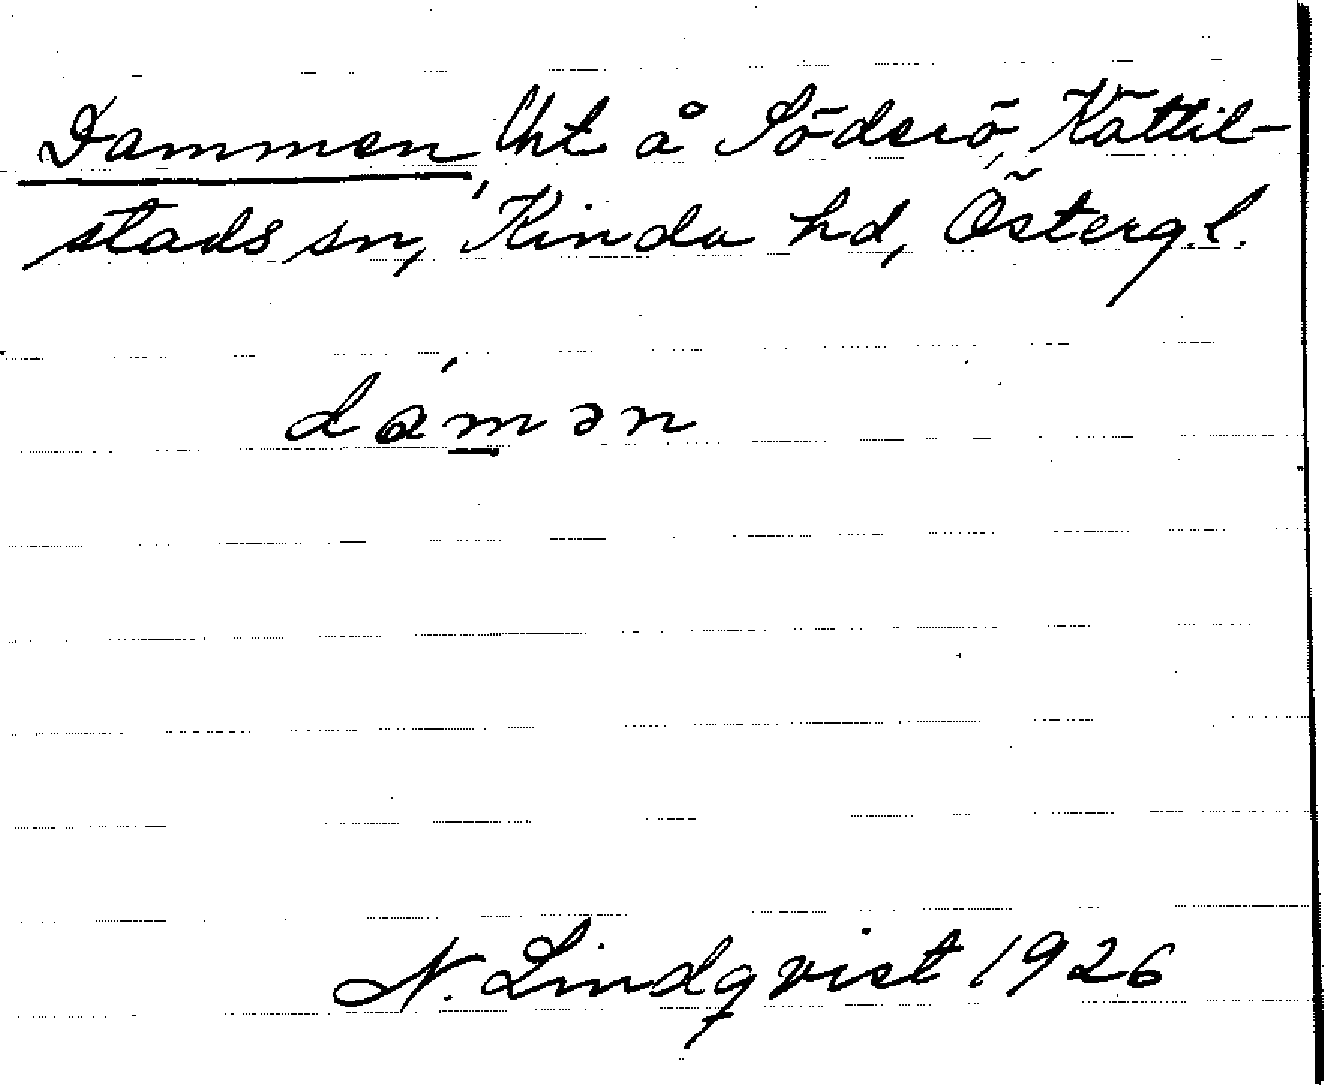 Dammen, Uht å Söderö, Kättil-
stads sn, Kinda hd, Östergl.
dám̲ən
N. Lindqvist 1926